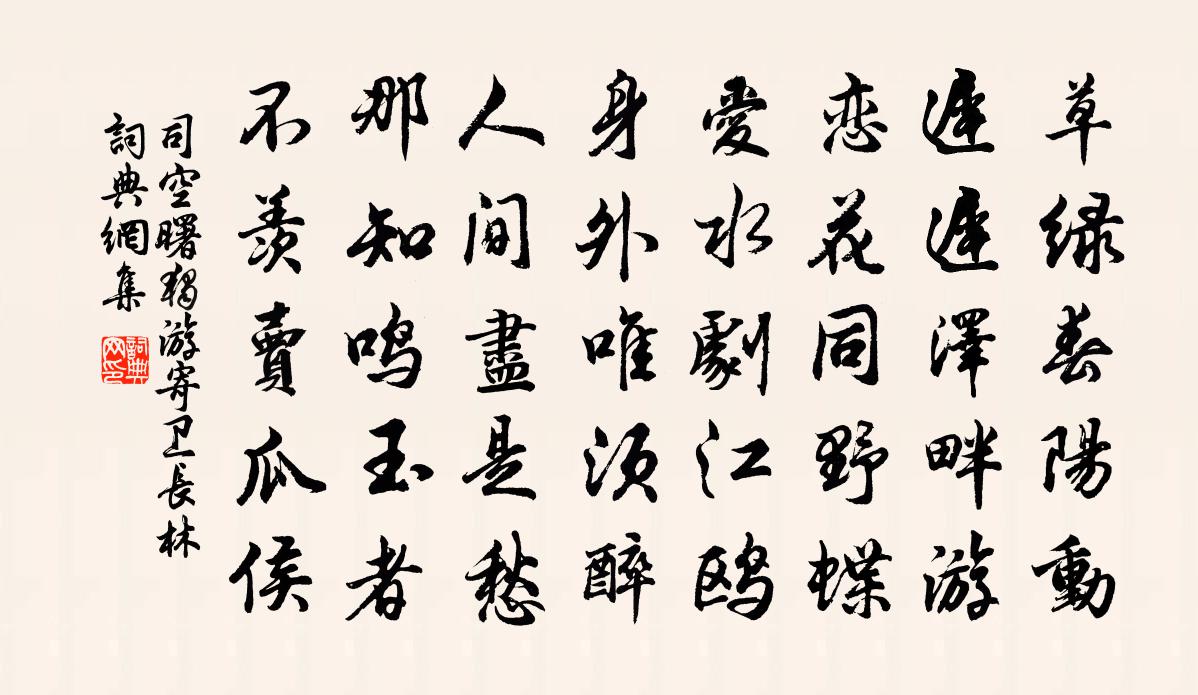 草绿春陽動
遲遲澤畔游
恋花同野蝶
愛水劇江鸥
身外唯須醉
人间盡是愁
那知鸣玉者
不羡賣瓜侯
司空曙獨游寄卫長林
詞典網集
詞典网印